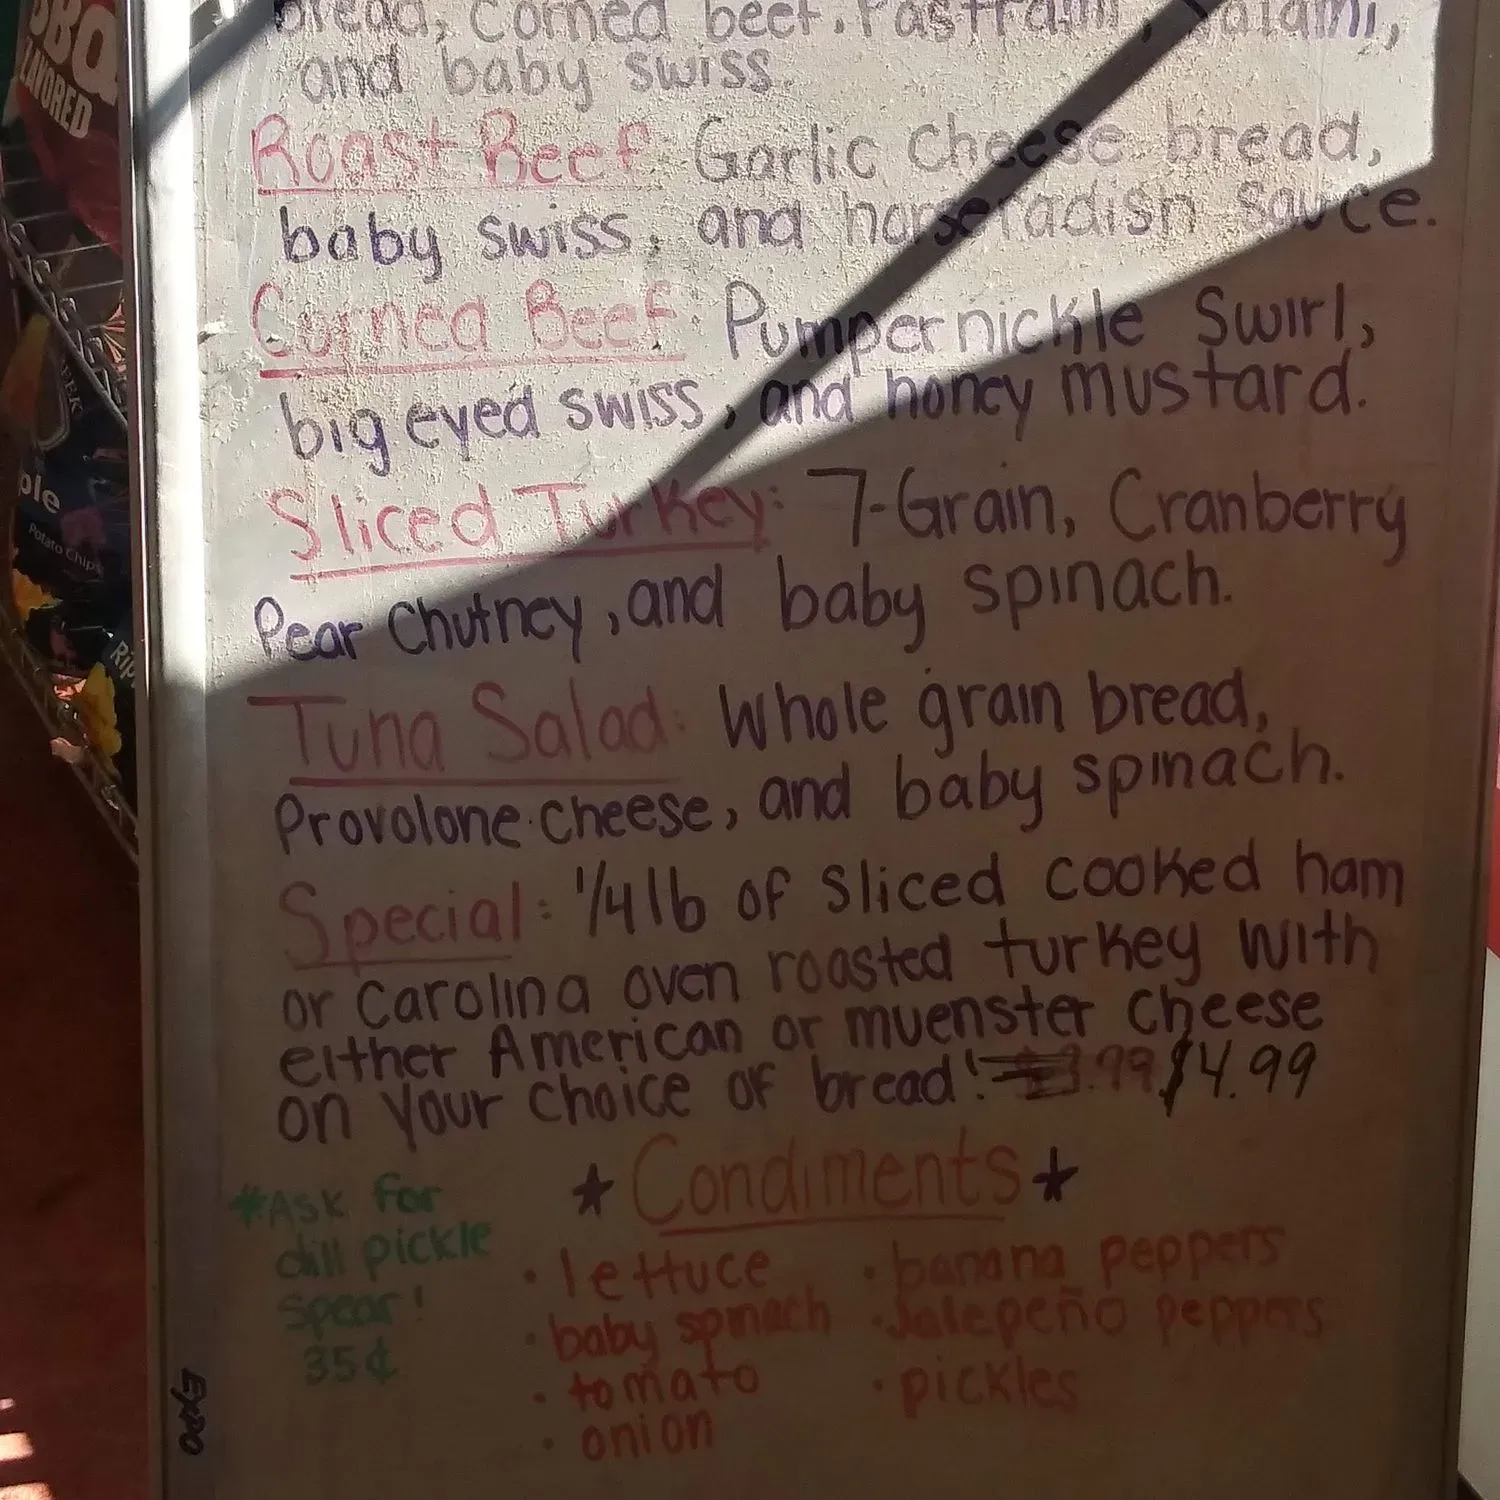 bread, Corned beef, Pastrami, Salami,
and baby swiss.
Roast Beef: Garlic cheese bread,
baby swiss, and horseradish sauce.
Corned Beef: Pumpernickle Swirl,
big eyed swiss, and honey mustard.
Sliced Turkey: 7-Grain, Cranberry
Pear Chutney, and baby spinach.
Tuna Salad: Whole grain bread,
Provolone cheese, and baby spinach.
Special: 1/4 lb of sliced cooked ham
or Carolina oven roasted turkey with
either American or muenster cheese
on your choice of bread! $3.99 $4.99
★ Condiments ★
*Ask for
dill pickle
spear!
35¢
• lettuce
• baby spinach
• tomato
• onion
• banana peppers
• Jalepeño peppers
• pickles
Expo
BBQ
FLAVORED
ple
Potato Chips
Rip